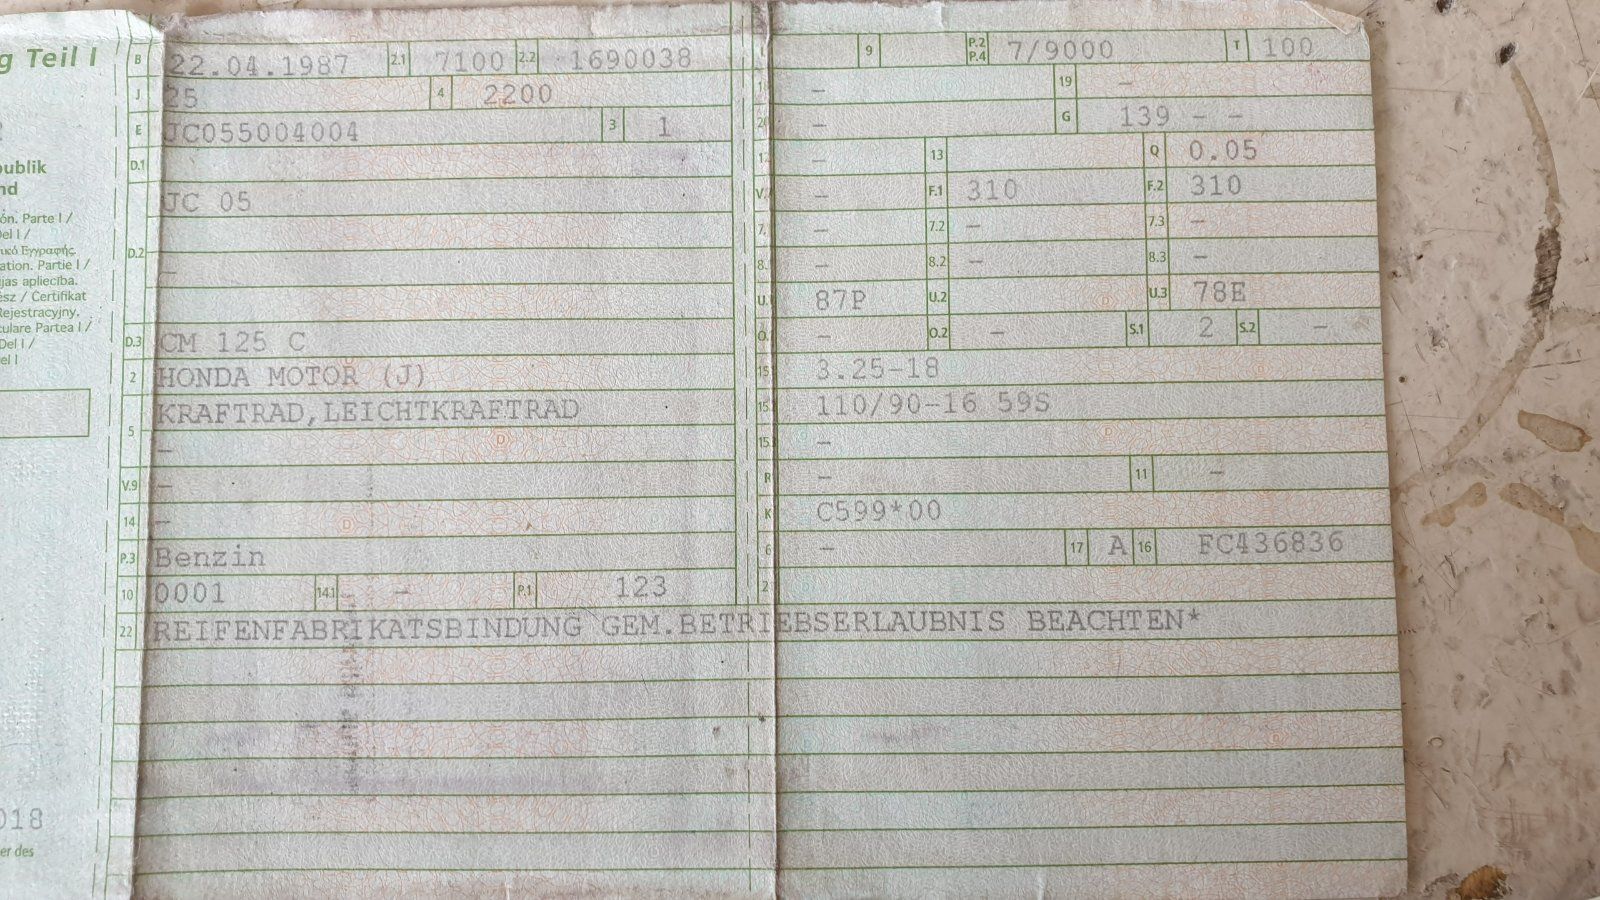 g Teil I
ublik
nd
ón. Parte I /
Del I /
ικό Εγγραφής.
ation. Partie I /
jas apliecība.
ész / Certifikat
Rejestracyjny.
culare Partea I /
Del I /
el I
018
er des
B 22.04.1987 2.1 7100 2.2 1690038
J 25 4 2200
E JC055004004 3 1
D.1
JC 05
D.2
-
D.3 CM 125 C
2 HONDA MOTOR (J)
KRAFTRAD,LEICHTKRAFTRAD
5 -
V.9 -
14 -
P.3 Benzin
10 0001 14.1 - P.1 123
9 P.2 P.4 7/9000 T 100
- 19 -
- G 139 - -
- 13 Q 0.05
V. - F.1 310 F.2 310
7. - 7.2 - 7.3 -
8. - 8.2 - 8.3 -
U. 87P U.2 78E U.3
O. - O.2 - S.1 2 S.2 -
15 3.25-18
15. 110/90-16 59S
15. -
R - 11 -
K C599*00
6 - 17 A 16 FC436836
2
22 REIFENFABRIKATSBINDUNG GEM.BETRIEBSERLAUBNIS BEACHTEN*